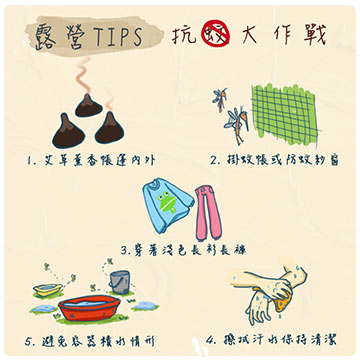 露營TIPS 抗蚊大作戰
1. 艾草薰香帳蓬內外
2. 掛蚊帳或防蚊紗窗
3. 穿著淺色長衫長褲
5. 避免容器積水情形
4. 擦拭汗水保持清潔